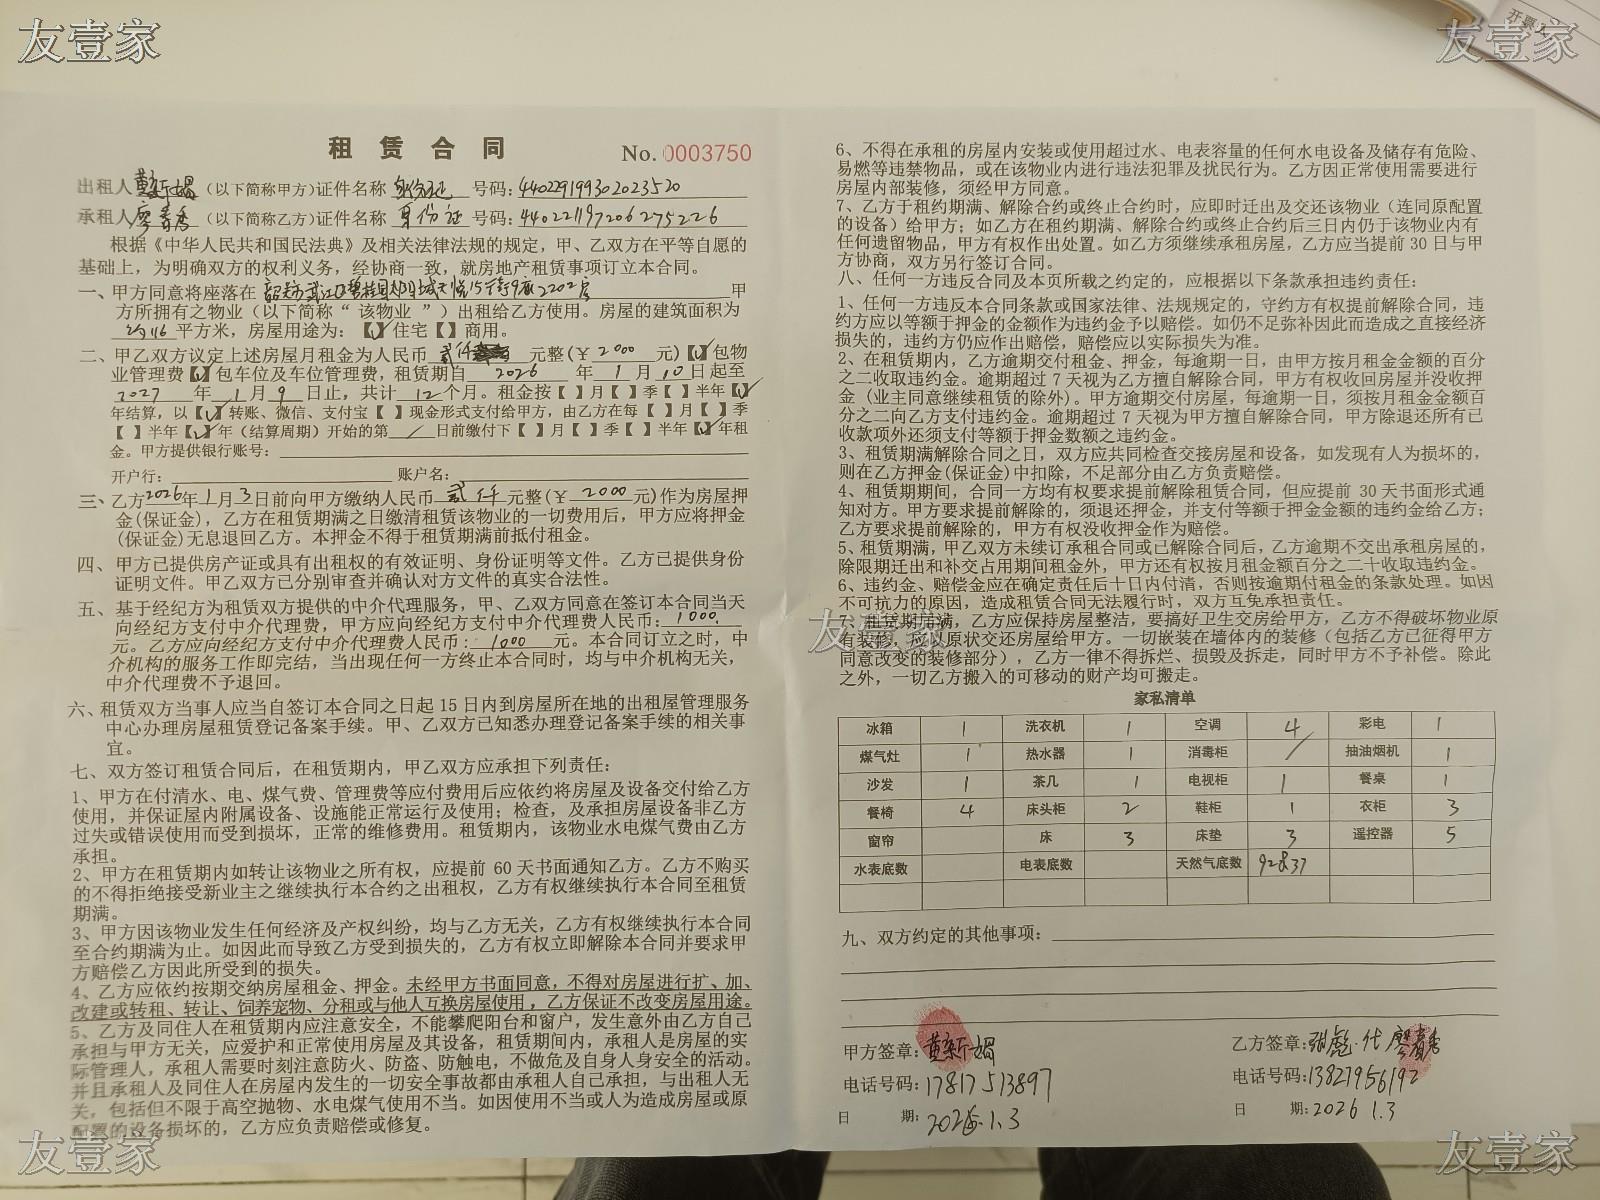 友壹家
友壹家
开票
租 赁 合 同
No. 0003750
出租人 黄新娟 (以下简称甲方)证件名称 身份证 号码: 440229199302023520
承租人 廖青秀 (以下简称乙方)证件名称 身份证 号码: 440221197206275226
根据《中华人民共和国民法典》及相关法律法规的规定，甲、乙双方在平等自愿的
基础上，为明确双方的权利义务，经协商一致，就房地产租赁事项订立本合同。
一、甲方同意将座落在 韶关市武江区碧桂园 城 15街9座2202房 甲
方所拥有之物业（以下简称“ 该物业 ”）出租给乙方使用。房屋的建筑面积为
约116 平方米，房屋用途为：【√】住宅【 】商用。
二、甲乙双方议定上述房屋月租金为人民币 贰仟 元整(￥2000 元)【√】包物
业管理费【√】包车位及车位管理费，租赁期自 2026 年 1 月 10 日起至
2027 年 1 月 9 日止，共计 12 个月。租金按【 】月【 】季【 】半年【√】
年结算，以【√】转账、微信、支付宝【 】现金形式支付给甲方，由乙方在每【 】月【 】季
【 】半年【√】年（结算周期）开始的第 / 日前缴付下【 】月【 】季【 】半年【√】年租
金。甲方提供银行账号：
开户行： 账户名：
三、乙方2026年1月3日前向甲方缴纳人民币 贰仟 元整(￥2000 元)作为房屋押
金(保证金)，乙方在租赁期满之日缴清租赁该物业的一切费用后，甲方应将押金
(保证金)无息退回乙方。本押金不得于租赁期满前抵付租金。
四、甲方已提供房产证或具有出租权的有效证明、身份证明等文件。乙方已提供身份
证明文件。甲乙双方已分别审查并确认对方文件的真实合法性。
五、基于经纪方为租赁双方提供的中介代理服务，甲、乙双方同意在签订本合同当天
向经纪方支付中介代理费，甲方应向经纪方支付中介代理费人民币：1000.
元。乙方应向经纪方支付中介代理费人民币：1000 元。本合同订立之时，中
介机构的服务工作即完结，当出现任何一方终止本合同时，均与中介机构无关，
中介代理费不予退回。
六、租赁双方当事人应当自签订本合同之日起 15 日内到房屋所在地的出租屋管理服务
中心办理房屋租赁登记备案手续。甲、乙双方已知悉办理登记备案手续的相关事
宜。
七、双方签订租赁合同后，在租赁期内，甲乙双方应承担下列责任：
1、甲方在付清水、电、煤气费、管理费等应付费用后应依约将房屋及设备交付给乙方
使用，并保证屋内附属设备、设施能正常运行及使用；检查，及承担房屋设备非乙方
过失或错误使用而受到损坏，正常的维修费用。租赁期内，该物业水电煤气费由乙方
承担。
2、甲方在租赁期内如转让该物业之所有权，应提前 60 天书面通知乙方。乙方不购买
的不得拒绝接受新业主之继续执行本合约之出租权，乙方有权继续执行本合同至租赁
期满。
3、甲方因该物业发生任何经济及产权纠纷，均与乙方无关，乙方有权继续执行本合同
至合约期满为止。如因此而导致乙方受到损失的，乙方有权立即解除本合同并要求甲
方赔偿乙方因此所受到的损失。
4、乙方应依约按期交纳房屋租金、押金。未经甲方书面同意，不得对房屋进行扩、加、
改建或转租、转让、饲养宠物、分租或与他人互换房屋使用，乙方保证不改变房屋用途。
5、乙方及同住人在租赁期内应注意安全，不能攀爬阳台和窗户，发生意外由乙方自己
承担与甲方无关，应爱护和正常使用房屋及其设备，租赁期间内，承租人是房屋的实
际管理人，承租人需要时刻注意防火、防盗、防触电，不做危及自身人身安全的活动。
并且承租人及同住人在房屋内发生的一切安全事故都由承租人自己承担，与出租人无
关，包括但不限于高空抛物、水电煤气使用不当。如因使用不当或人为造成房屋或原
配置的设备损坏的，乙方应负责赔偿或修复。
6、不得在承租的房屋内安装或使用超过水、电表容量的任何水电设备及储存有危险、
易燃等违禁物品，或在该物业内进行违法犯罪及扰民行为。乙方因正常使用需要进行
房屋内部装修，须经甲方同意。
7、乙方于租约期满、解除合约或终止合约时，应即时迁出及交还该物业（连同原配置
的设备）给甲方；如乙方在租约期满、解除合约或终止合约后三日内仍于该物业内有
任何遗留物品，甲方有权作出处置。如乙方须继续承租房屋，乙方应当提前 30 日与甲
方协商，双方另行签订合同。
八、任何一方违反合同及本页所载之约定的，应根据以下条款承担违约责任：
1、任何一方违反本合同条款或国家法律、法规规定的，守约方有权提前解除合同，违
约方应以等额于押金的金额作为违约金予以赔偿。如仍不足弥补因此而造成之直接经济
损失的，违约方仍应作出赔偿，赔偿应以实际损失为准。
2、在租赁期内，乙方逾期交付租金、押金，每逾期一日，由甲方按月租金金额的百分
之二收取违约金。逾期超过 7 天视为乙方擅自解除合同，甲方有权收回房屋并没收押
金（业主同意继续租赁的除外）。甲方逾期交付房屋，每逾期一日，须按月租金金额百
分之二向乙方支付违约金。逾期超过 7 天视为甲方擅自解除合同，甲方除退还所有已
收款项外还须支付等额于押金数额之违约金。
3、租赁期满解除合同之日，双方应共同检查交接房屋和设备，如发现有人为损坏的，
则在乙方押金(保证金)中扣除，不足部分由乙方负责赔偿。
4、租赁期期间，合同一方均有权要求提前解除租赁合同，但应提前 30 天书面形式通
知对方。甲方要求提前解除的，须退还押金，并支付等额于押金金额的违约金给乙方；
乙方要求提前解除的，甲方有权没收押金作为赔偿。
5、租赁期满，甲乙双方未续订承租合同或已解除合同后，乙方逾期不交出承租房屋的，
除限期迁出和补交占用期间租金外，甲方还有权按月租金额百分之二十收取违约金。
6、违约金、赔偿金应在确定责任后十日内付清，否则按逾期付租金的条款处理。如因
不可抗力的原因，造成租赁合同无法履行时，双方互免承担责任。
7、租赁期届满，乙方应保持房屋整洁，要搞好卫生交房给甲方，乙方不得破坏物业原
有装修，应以原状交还房屋给甲方。一切嵌装在墙体内的装修（包括乙方已征得甲方
同意改变的装修部分），乙方一律不得拆烂、损毁及拆走，同时甲方不予补偿。除此
之外，一切乙方搬入的可移动的财产均可搬走。
友壹家
家私清单
冰箱 1 洗衣机 1 空调 4 彩电 1
煤气灶 1 热水器 1 消毒柜 / 抽油烟机 1
沙发 1 茶几 1 电视柜 1 餐桌 1
餐椅 4 床头柜 2 鞋柜 1 衣柜 3
窗帘 床 3 床垫 3 遥控器 5
水表底数 电表底数 天然气底数 92837
九、双方约定的其他事项：
甲方签章：黄新娟 乙方签章：张彪 代 廖青秀
电话号码：17817513897 电话号码：13827956192
日 期：2026.1.3 日 期：2026 1.3
友壹家
友壹家